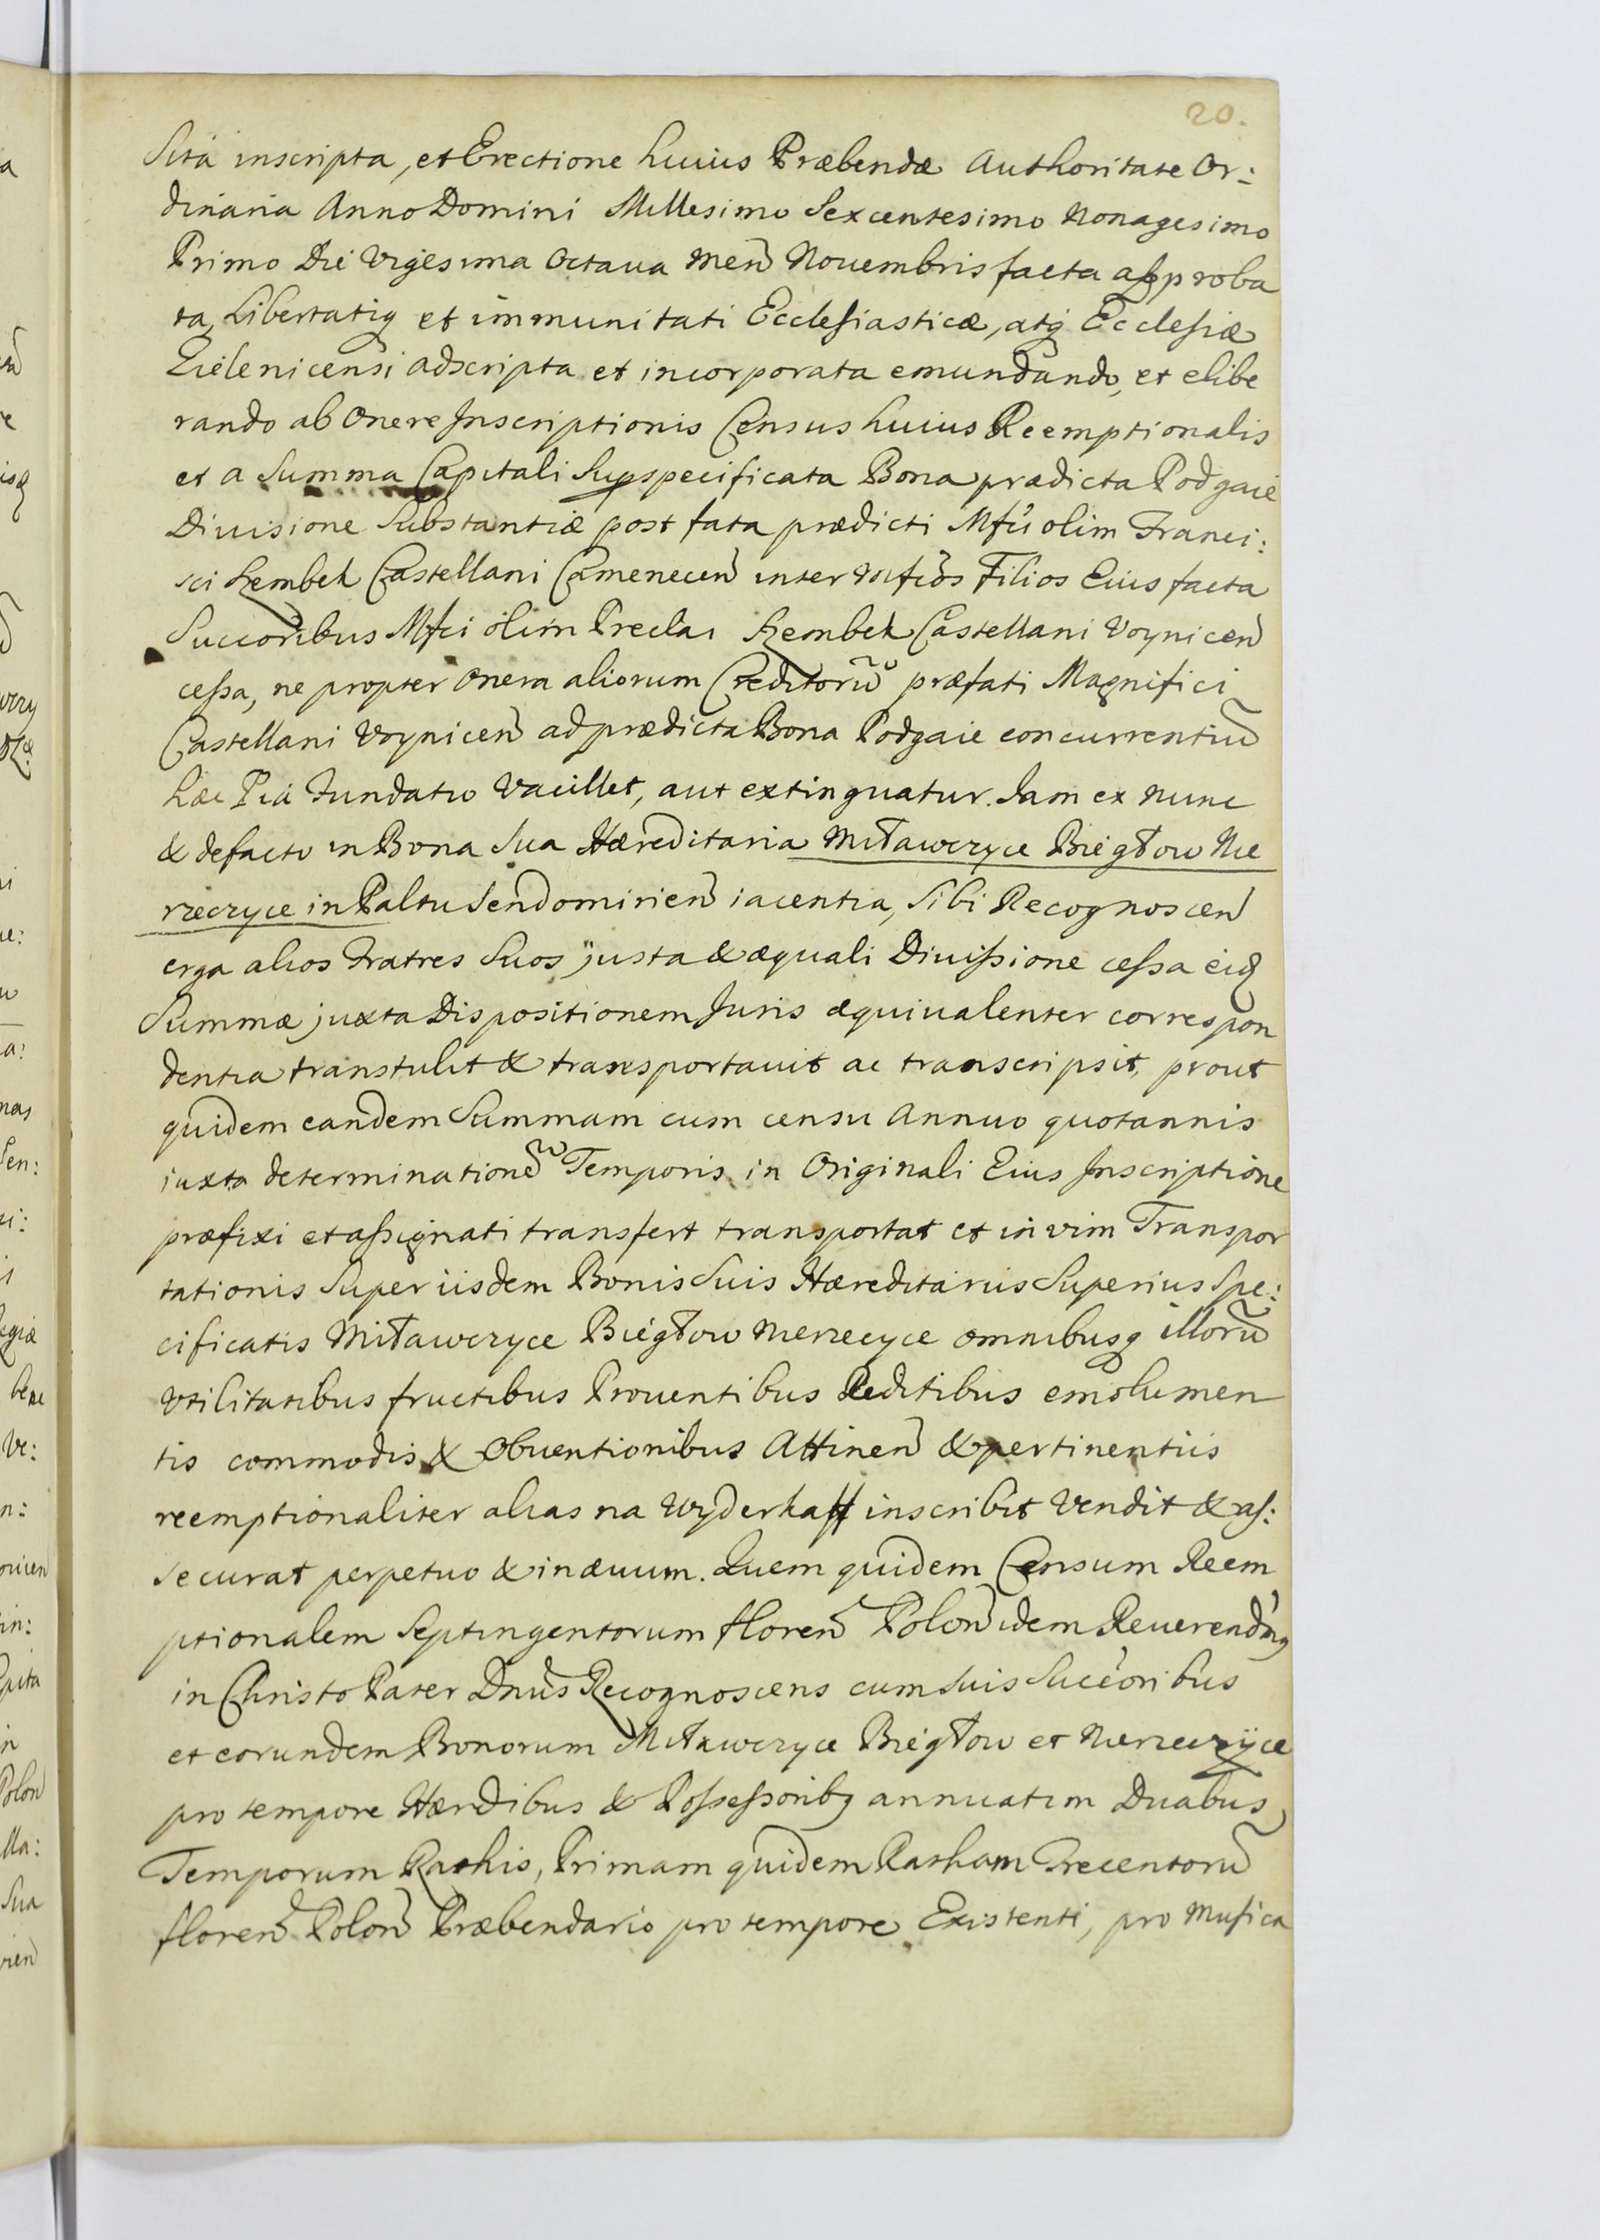 20.
Sita inscripta, et Erectione huius Præbendæ Authoritate Or:
dinaria Anno Domini Millesimo Sexcentesimo Nonagesimo
Primo Die Vigesima Octaua Men Nouembris facta approba
ta, Libertatiq et immunitati Ecclesiasticæ, atq Ecclesiæ
Lielenicensi adscripta et incorporata emundando, et elibe
rando ab Onere Inscriptionis Census huius Reemptionalis
et a Summa Capitali Supspecificata Bona prædicta Podgaie
Diuisione Substantiæ post fata prædicti Mfci olim Franci:
sci Szembek Castellani Camenecen inter Mfcos Filios Eius facta
Succoribus Mfci olim Preclai Szembek Castellani Voynicen
cessa, ne propter Onera aliorum Creditorū præfati Magnifici
Castellani Voynicen ad prædicta Bona Podgaie concurrentiū
hæc Pia Fundatio Vacillet, aut extinguatur. Iam ex Nunc
& defacto in Bona Sua Hæreditaria Mitawczyce Biegłow Nie
rzeczyce in Paltu Sendomirien iacentia, Sibi Recognoscen
erga alios Fratres Suos justa & æquali Diuissione cessa eidę
Summæ juxta Dispositionem Iuris æquiualenter correspon
dentia transtulit & transportauit ac transcripsit, prout
quidem eandem Summam cum censu Annuo quotannis
iuxta determinationē Temporis in Originali Eius Inscriptione
præfixi et assignati transfert transportat et in vim Transpor
tationis Super iisdem Bonis Suis Hæreditariis Superius Spe:
cificatis Mitawczyce Biegłow Nierzecyce omnibusq illorū
Vtilitatibus fructibus Prouentibus Reditibus emolumen
tis commodis & Obuentionibus Attinen & pertinentiis
reemptionaliter alias na Wyderkaff inscribit Vendit & as:
securat perpetuo & in æuum. Quem quidem Censum Reem
ptionalem Septingentorum floren Polon idem Reuerendmq
in Christo Pater Dnus Recognoscens cum Suis Succeoribus
et eorundem Bonorum Mitawczyce Biegłow et Nierzeczyce
pro tempore Hærdibus & Possessoribq annuatim Duabus
Temporum Rathis, Primam quidem Ratham Trecentorū
floren Polon Præbendario pro tempore Existenti, pro Musica